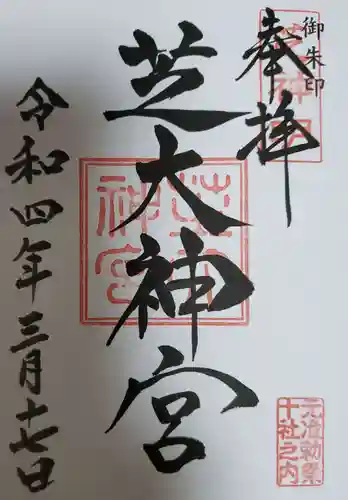 御朱印
奉拝
芝大神宮
令和四年三月十七日
元准勅祭
十社之内